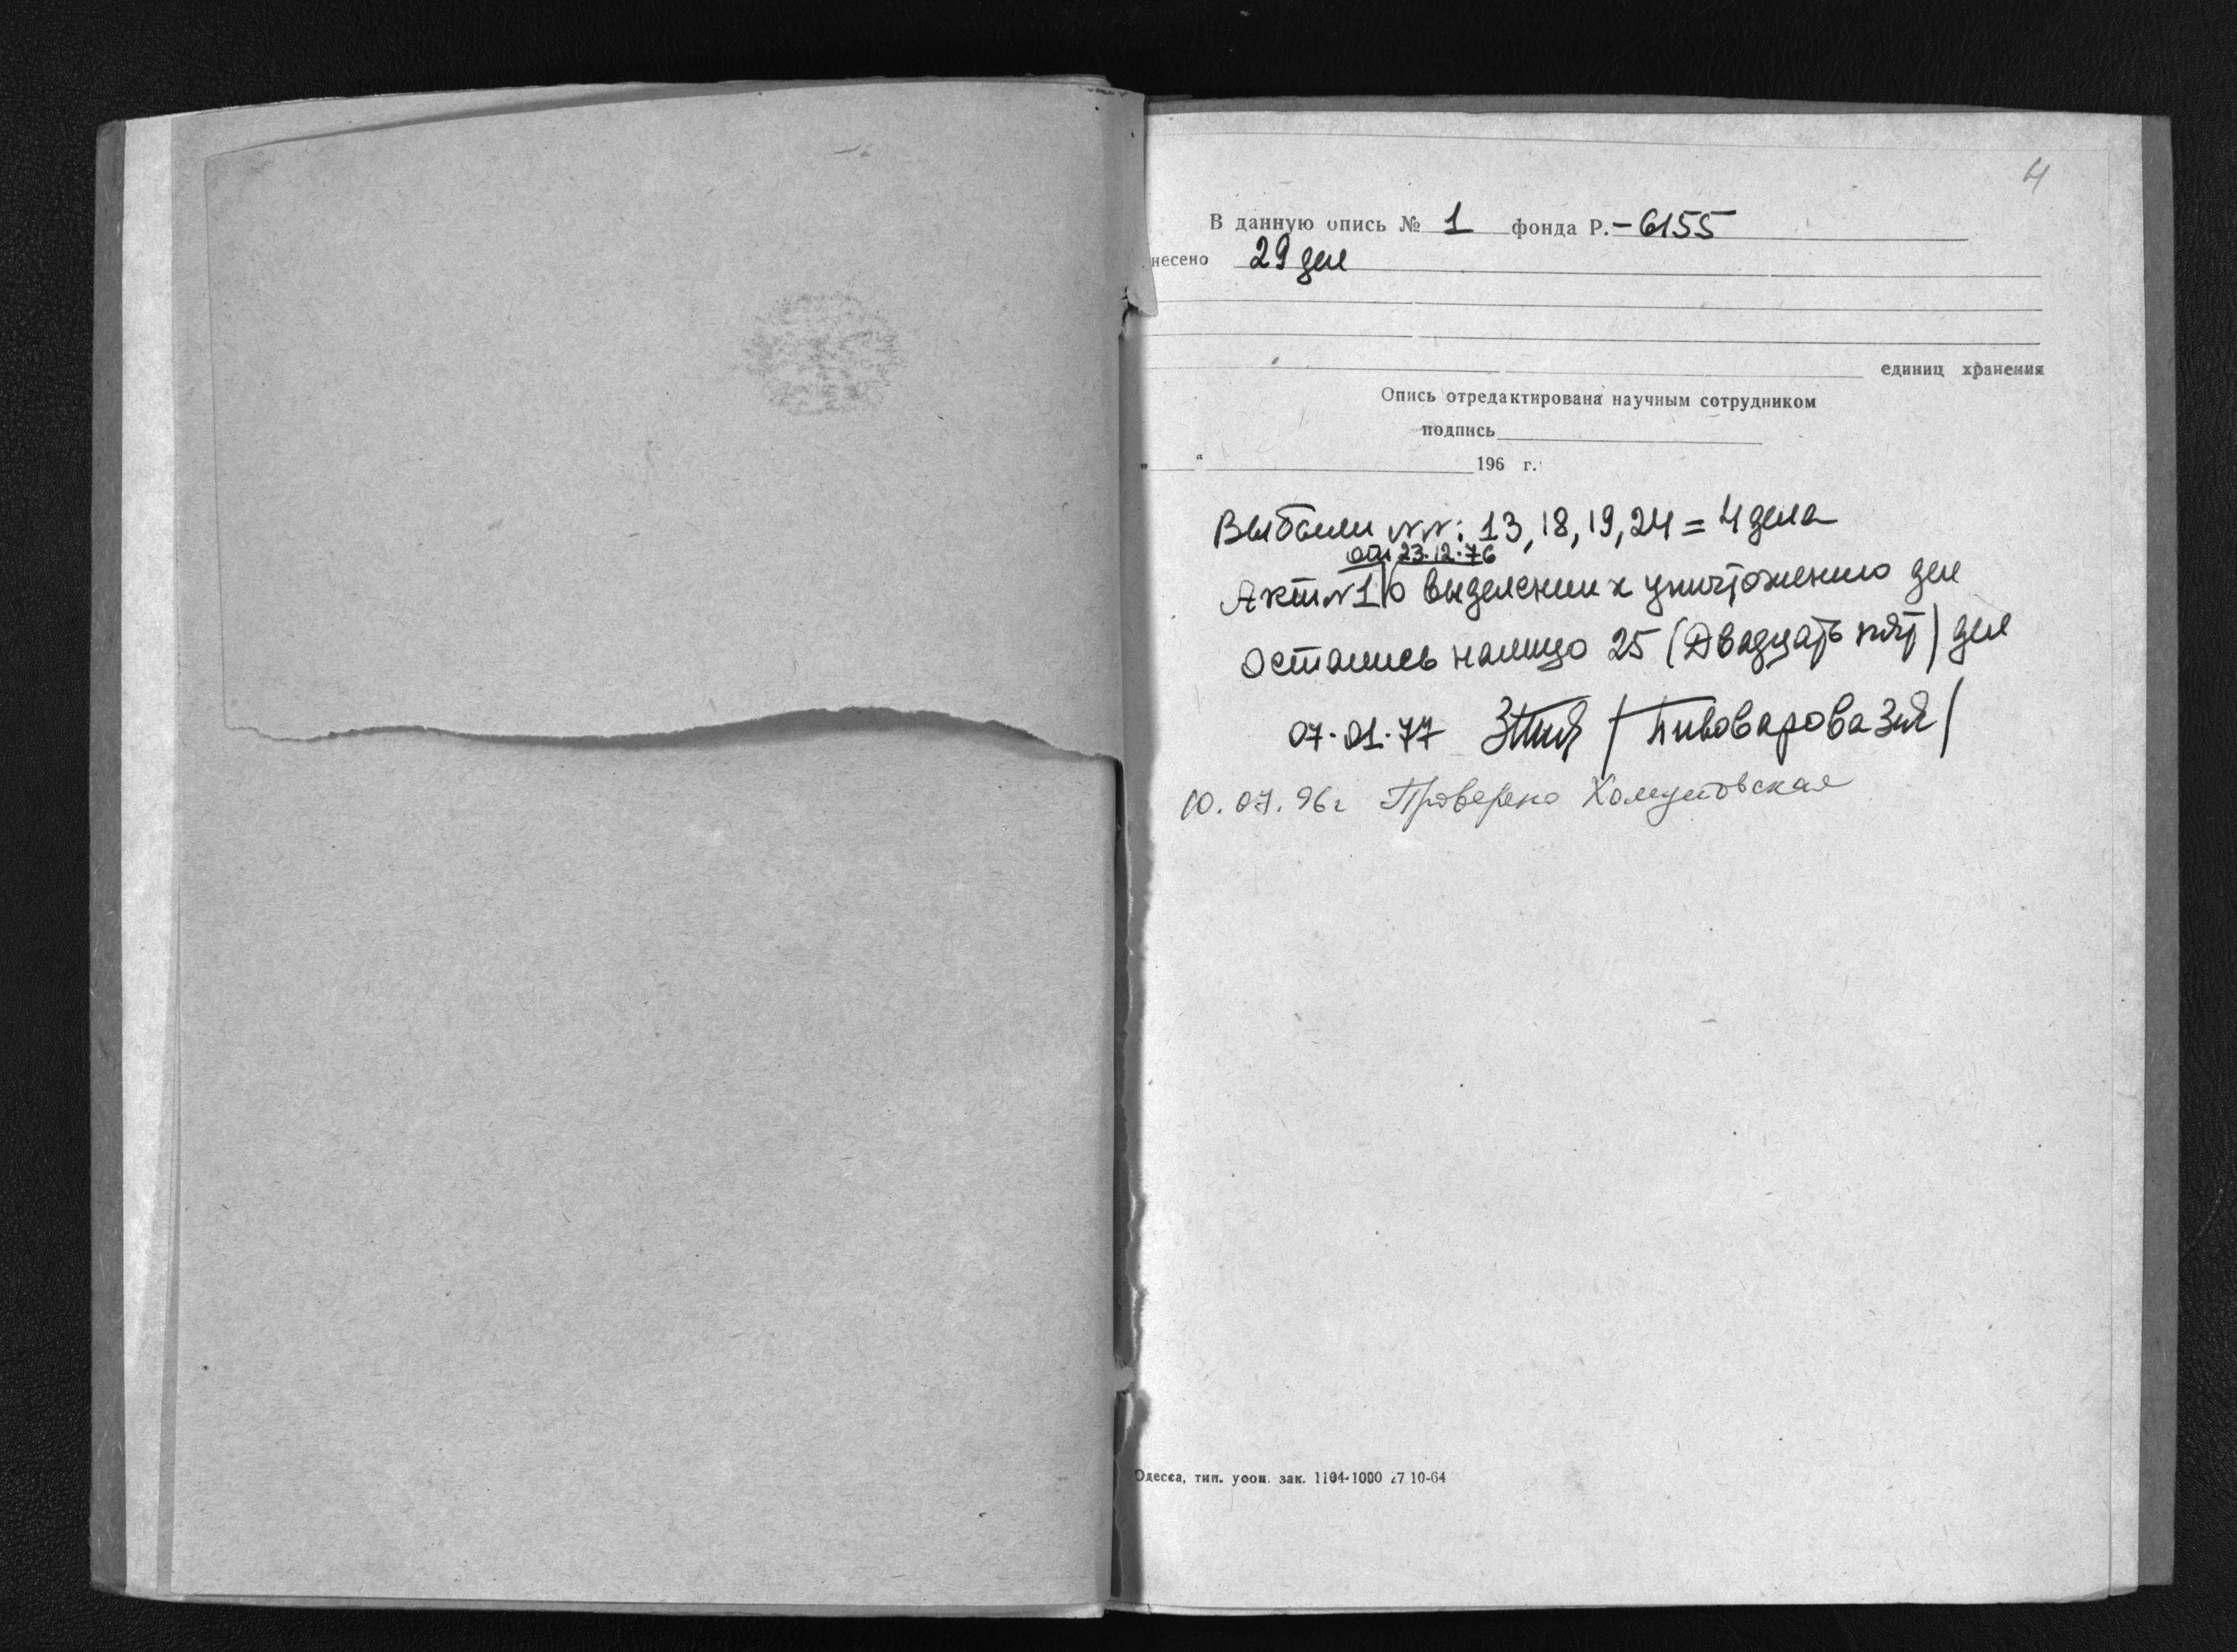 4
В данную опись № 1 фонда Р.-6155
несено 29 дел
единиц хранения
Опись отредактирована научным сотрудником
подпись
„ “ 196 г.
Выбыли NN: 13, 18, 19, 24 = 4 дела
от 23.12.76
Акт N 1 о выделении к уничтожению дел
Остались налицо 25 (Двадцать пят) дел
07.01.77 /Пивоварова ЗИ/
10.07.96г Проверено Хомутовская
Одесса, тип. зак. 1104-1000 27 10-64